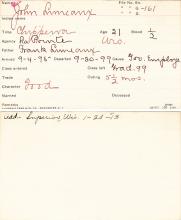 John Lemieux
Indian name
Tribe Chippewa Age 21 Blood 1/2
Agency La Pointe Wis.
Father Frank Lemieux
Arrived 9-4-95 Departed 9-30-99
Class entered Class left Grad. 99
Trade Outing 5 1/2 mos.
Character Good
Married Deceased
Remarks
Superior, Wis. 1-20-13